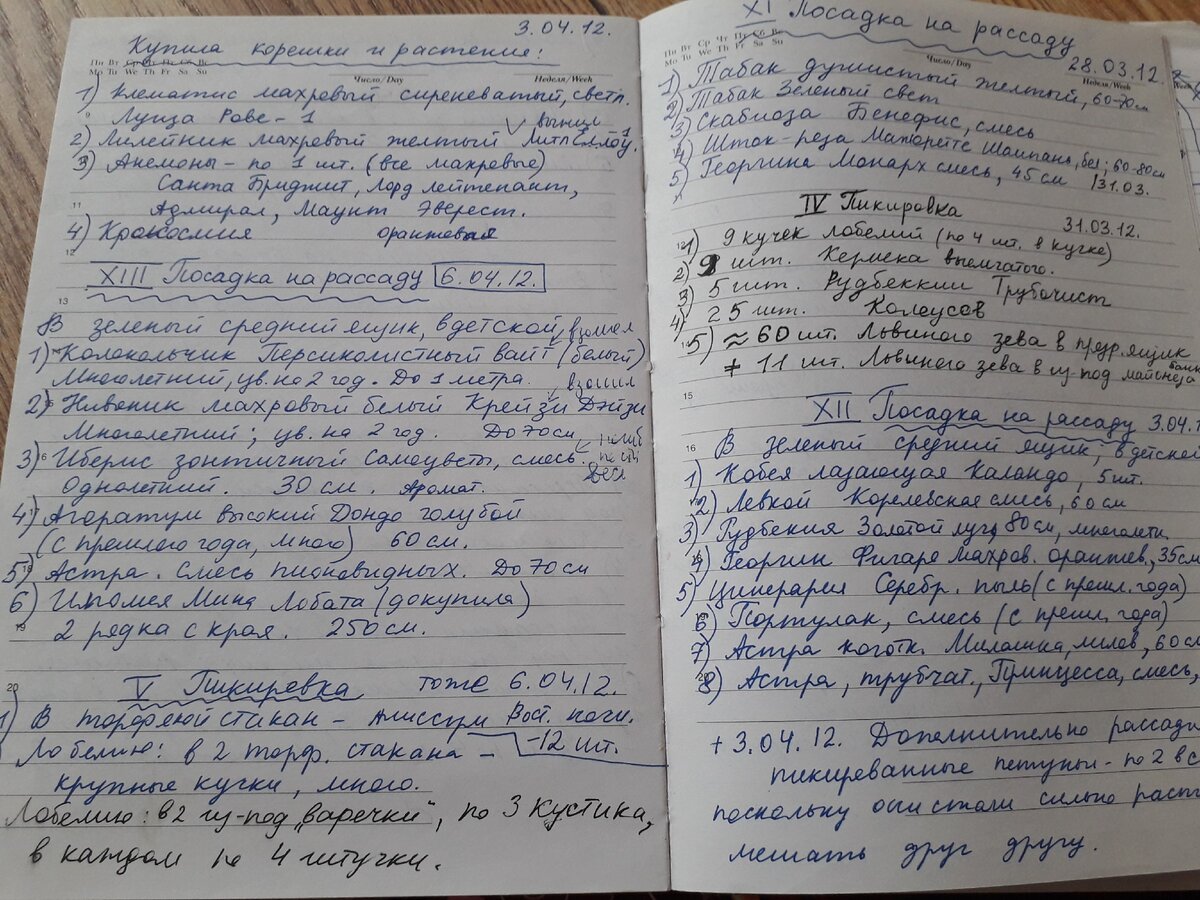 3.04.12.
Купила корешки и растения:
Пн Вт Ср Чт Пт Сб Вс
Mo Tu We Th Fr Sa Su
Число/Day Неделя/Week
1) Клематис махровый сиреневатый, светл.
Луиза Рове - 1
2) Лилейник махровый желтый Литл Еллоу. 1
3) Анемоны - по 1 шт. (все махровые)
Санта Бриджит, Лорд лейтенант,
Адмирал, Маунт Эверест.
11
4) Крокосмия оранжевая
12
XIII Посадка на рассаду 6.04.12.
13
В зеленый средний ящик, в детской
1) Колокольчик Персиколистный вайт (белый) взошел
Многолетний, цв. на 2 год. До 1 метра.
2) Нивяник махровый белый Крейзи Дэйзи взошли
Многолетний; цв. на 2 год. До 70 см
3) Иберис зонтичный Самоцветы, смесь.
Однолетний. 30 см. Аромат.
4) Агератум высокий Дондо голубой
(с прошлого года, много) 60 см.
5) Астра. Смесь пионовидных. До 70 см
6) Ипомея Мина Лобата (докупила)
2 рядка с края. 250 см.
19
20
V Пикировка тоже 6.04.12.
1) В торфяной стакан - Алиссум Вост. ночи.
- 12 шт.
Лобелию: в 2 торф. стакана -
крупные кучки, много.
Лобелию: в 2 из-под "варечки", по 3 кустика,
в каждом по 4 штучки.
XI Посадка на рассаду
Пн Вт Ср Чт Пт Сб Вс
Mo Tu We Th Fr Sa Su
Число/Day Неделя/Week
28.03.12.
1) Табак душистый желтый, 60-70 см
2) Табак Зеленый свет
3) Скабиоза Бенефис, смесь
4) Шток-роза Мажоретте Шампань, бел; 60-80 см
5) Георгина Монарх смесь, 45 см /31.03.
IV Пикировка
31.03.12.
1) 9 кучек лобелий (по 4 шт. в кучке)
2) 9 шт. Кермека выемчатого.
3) 5 шт. Рудбеккии Трубочист
4) 25 шт. Колеусов
5) ≈ 60 шт. Львиного зева в прдр. ящик
+ 11 шт. Львиного зева в из-под майонеза банк
15
XII Посадка на рассаду 3.04.1
16
В зеленый средний ящик, в детской
1) Кобея лазающая Каландо, 5 шт.
2) Левкой Королевская смесь, 60 см
3) Рудбекия Золотой луг, 80 см, многолетн.
4) Георгин Фигаро махров. оранжев., 35 см
5) Цинерария Серебр. пыль (с прошл. года)
6) Портулак, смесь (с прошл. года)
7) Астра коготк. Милашка, лилов, 60 см
8) Астра, трубчат., Принцесса, смесь,
+ 3.04.12. Дополнительно рассади
пикированные петуньи - по 2 в с
поскольку они стали сильно раст
мешать друг другу.